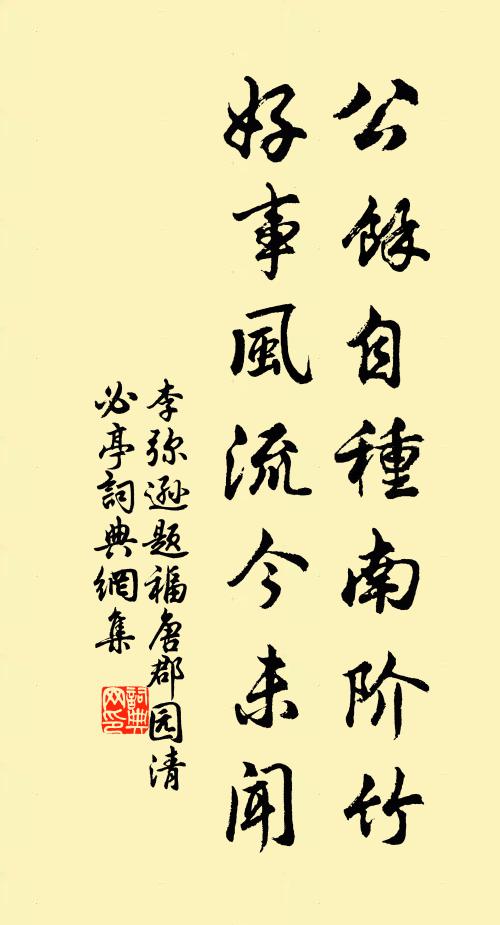 公餘自種南阶竹
好事風流今未闻
李弥遜题福唐郡园清
必亭詞典網集
詞典网印